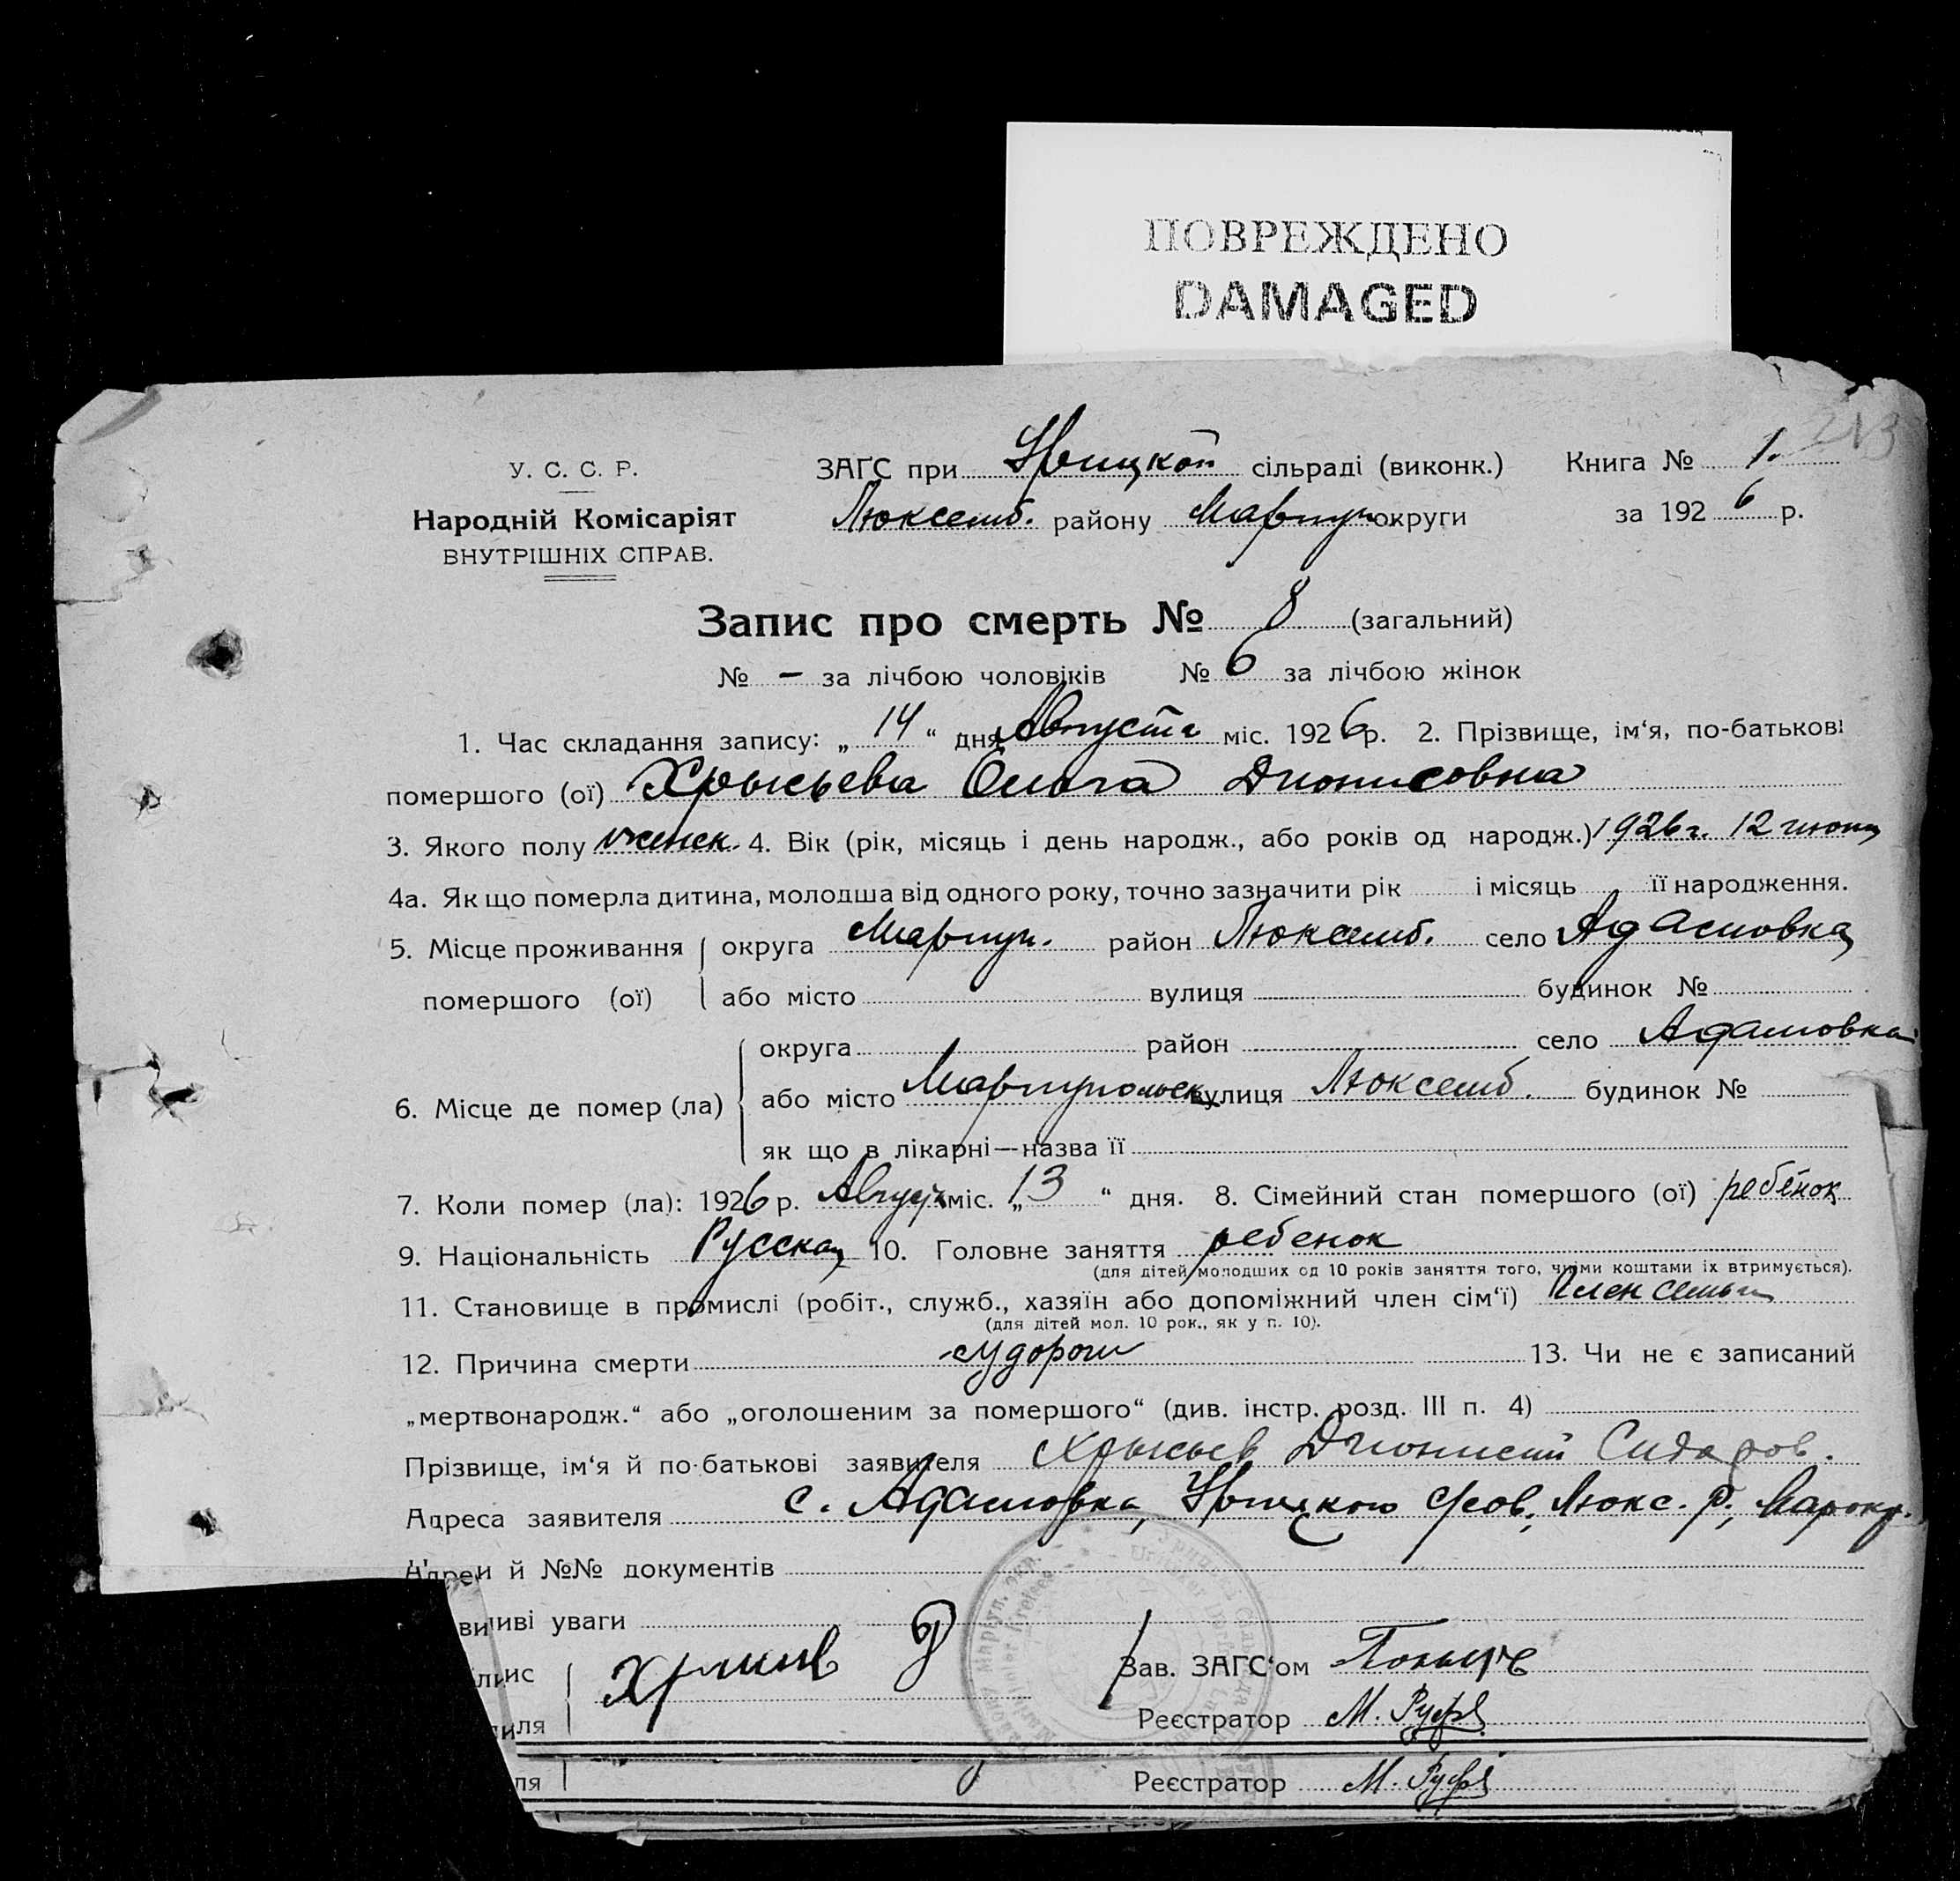 ПОВРЕЖДЕНО
DAMAGED
213
У. С. С. Р.
Народній Комісаріят
ВНУТРІШНІХ СПРАВ.
ЗАҐС при Урицкой сільраді (виконк.) Книга № 1.
Люксемб. району Мариуп. округи за 1926 р.
Запис про смерть № 8 (загальний)
№ – за лічбою чоловіків № 6 за лічбою жінок
1. Час складання запису: „14“ дня Августа міс. 1926 р. 2. Прізвище, ім‘я, по-батькові
помершого (ої) Хрыкьева Ольга Дионисовна
3. Якого полу женск. 4. Вік (рік, місяць і день народж., або років од народж.) 1926 г. 12 июня
4а. Як що померла дитина, молодша від одного року, точно зазначити рік і місяць її народження.
5. Місце проживання округа Мариуп. район Люксемб. село Адамовка
помершого (ої) або місто вулиця будинок №
округа район село Адамовка
6. Місце де помер (ла) або місто Мариупольск вулиця Люксемб. будинок №
як що в лікарні—назва її
7. Коли помер (ла): 1926 р. Август міс. „13“ дня. 8. Сімейний стан помершого (ої) ребёнок
9. Національність Русская 10. Головне заняття ребенок
(для дітей молодших од 10 років заняття того, чиїми коштами їх втримується).
11. Становище в промислі (робіт., служб., хазяїн або допоміжний член сім‘ї) Член семьи
(для дітей мол. 10 рок., як у п. 10).
12. Причина смерти судороги 13. Чи не є записаний
„мертвонародж.“ або „оголошеним за помершого“ (див. інстр. розд. III п. 4)
Прізвище, ім‘я й по-батькові заявителя Хрыкьев Дионисий Сидоров.
Адреса заявителя с. Адамовка, Урицкого с/сов, Люкс. р., Мар окр.
й №№ документів
уваги
Зав. ЗАГС‘ом
Реєстратор М.
Реєстратор М.